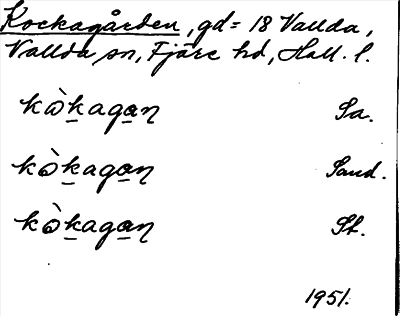 Kockagården, gd = 18 Vallda,
Vallda sn, Fjäre hd, Hall. l.
kò̱kaga̱n Sa.
kò̱kaga̱n Sand.
kò̱kaga̱n St.
1951.